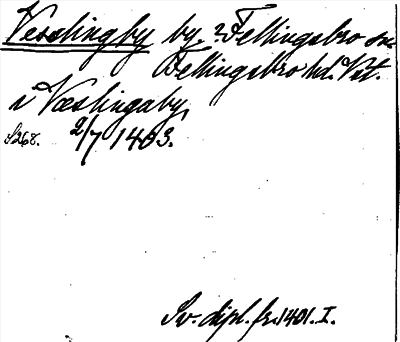 Vesslingby by, ? Fellingsbro sn.
Fellingsbro hd. Vst.
i Væslingaby
S268. 2/7 1403.
Sv. dipl. fr. 1401. I.